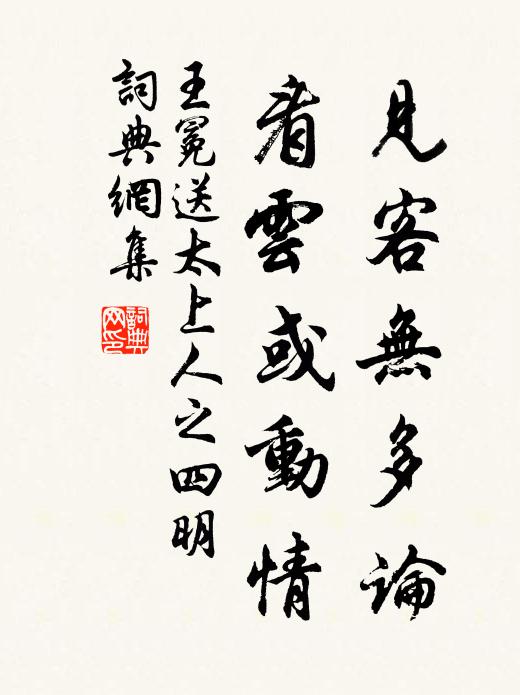 見客無多論
看雲或動情
王冕送太上人之四明
詞典網集
詞典
网印